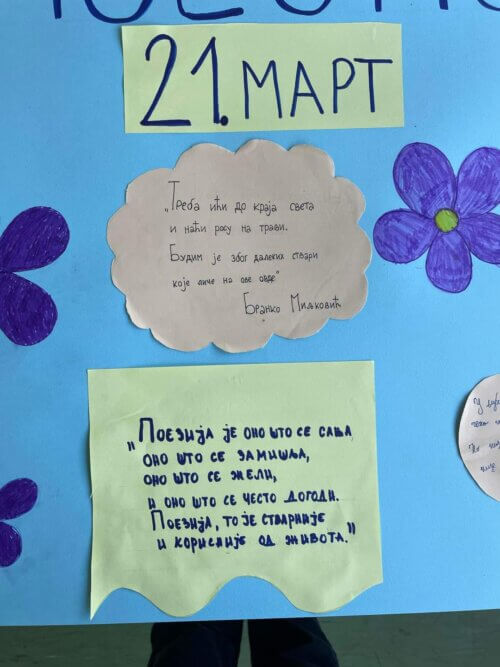 21. МАРТ
„Треба ићи до краја света
и наћи росу на трави.
Будим је због далеких ствари
које личе на ове овде"
Бранко Миљковић
„Поезија је оно што се сања
оно што се замишља,
оно што се жели,
и оно што се често догоди.
Поезија, то је стварније
и корисније од живота."